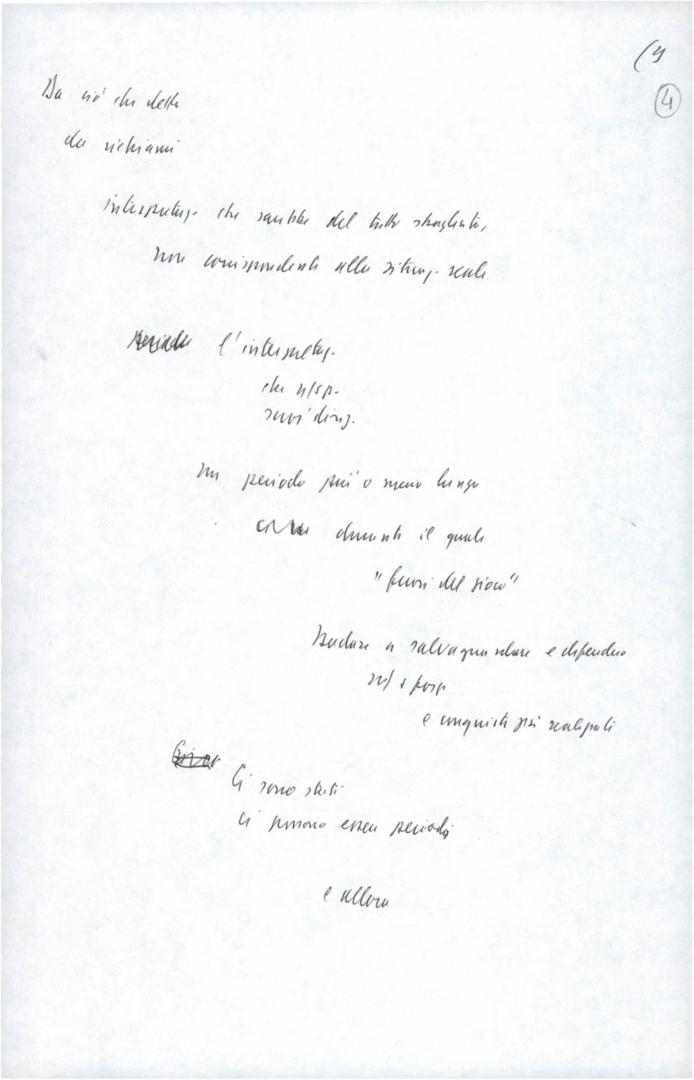 (9
4
Da ciò che detto
da richiami
interpretaz. che sarebbe del tutto sbagliata,
non corrispondente alla situaz. reale
l'interpretaz.
che
Un periodo più o meno lungo
durante il quale
"fuori del gioco"
Badare a salvaguardare e difendere
e conquiste già realizzati
Ci sono stati
ci possono essere periodi
e allora